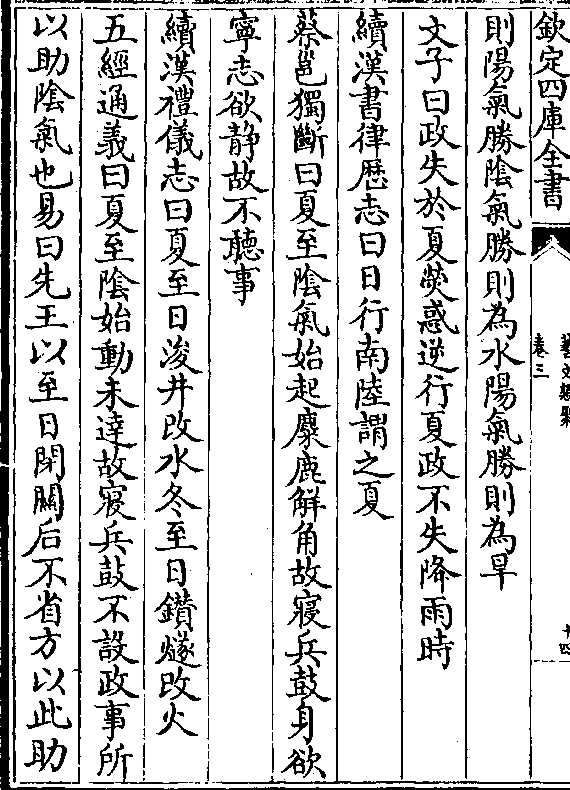 欽定四庫全書
藝文類聚
卷三
十四
則陽氣勝陰氣勝則為水陽氣勝則為旱
文子曰政失於夏熒惑逆行夏政不失降雨時
續漢書律歷志曰日行南陸謂之夏
蔡邕獨斷曰夏至陰氣始起麋鹿解角故寢兵鼓身欲
寧志欲静故不聽事
續漢禮儀志曰夏至日浚井改水冬至日鑚燧改火
五經通義曰夏至陰始動未達故寢兵鼓不設政事所
以助陰氣也易曰先王以至日閉關后不省方以此助